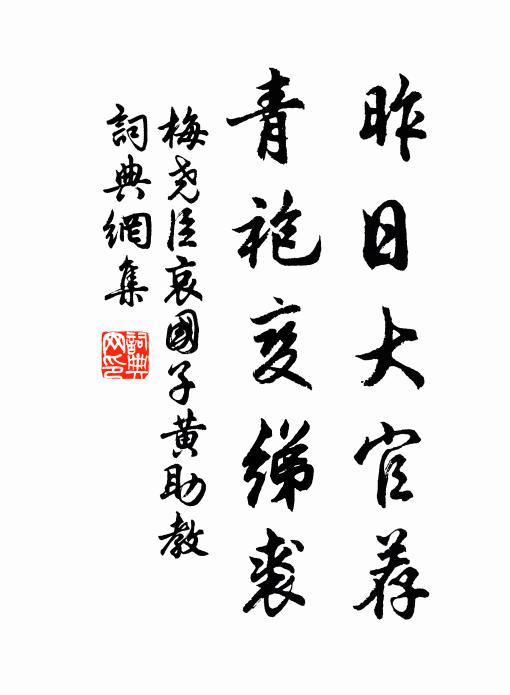 昨日大官荐
青袍变绨裘
梅尧臣哀國子黄助教
詞典網集
詞典网印